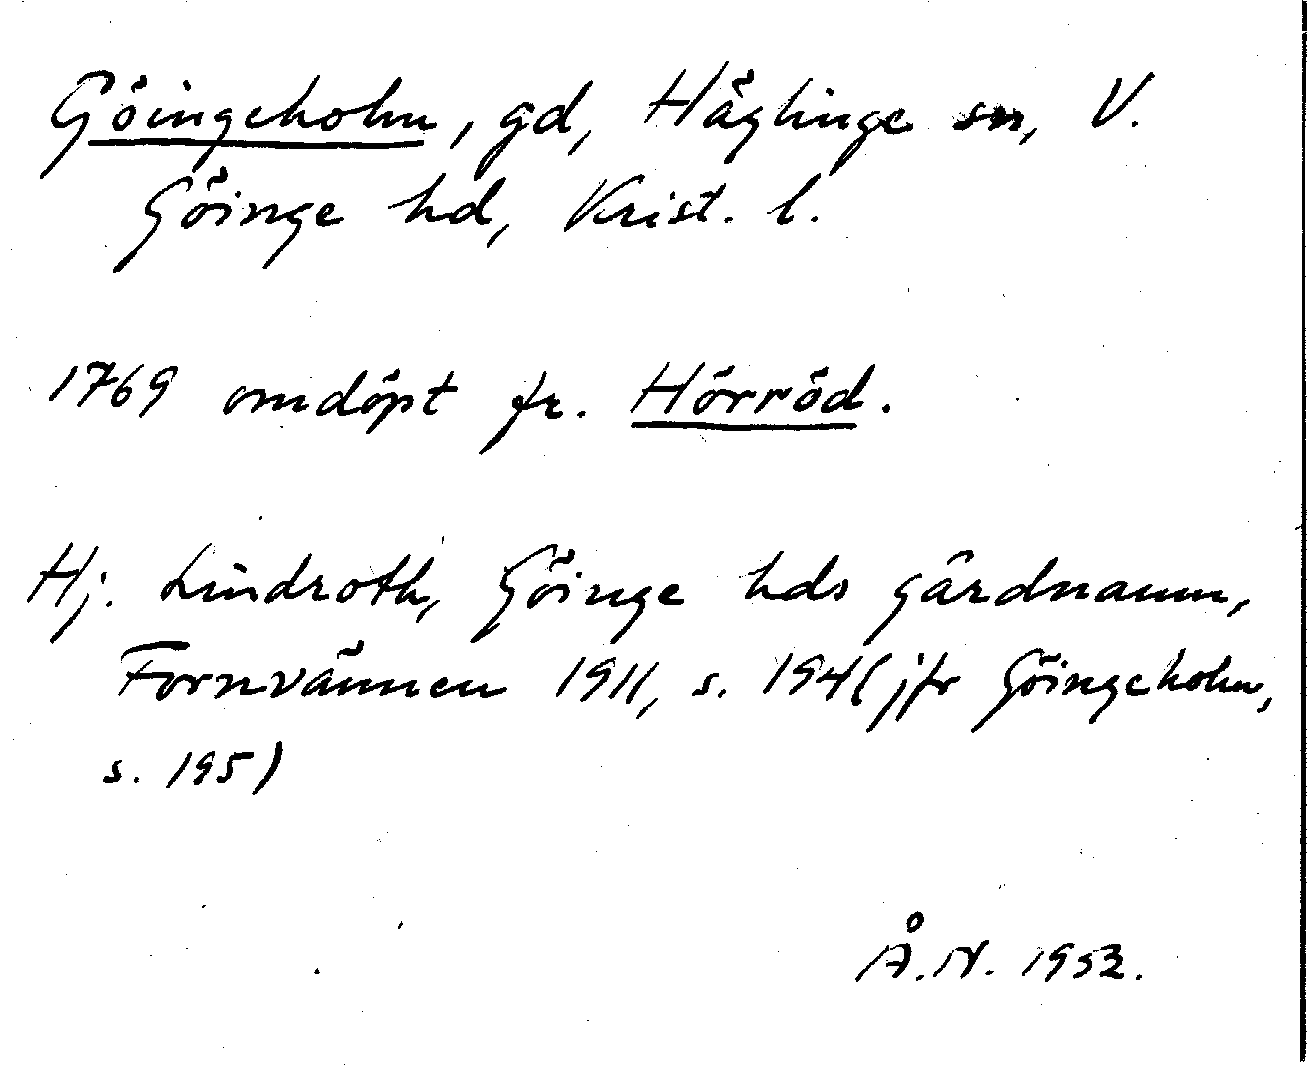 Göingeholm, gd, Häglinge sn, V.
Göinge hd, Krist. l.
1769 omdöpt fr. Hörröd.
Hj. Lindroth, Göinge hds gårdnamn,
Fornvännen 1911, s. 194 (jfr Göingeholm,
s. 195)
Å.N. 1953.